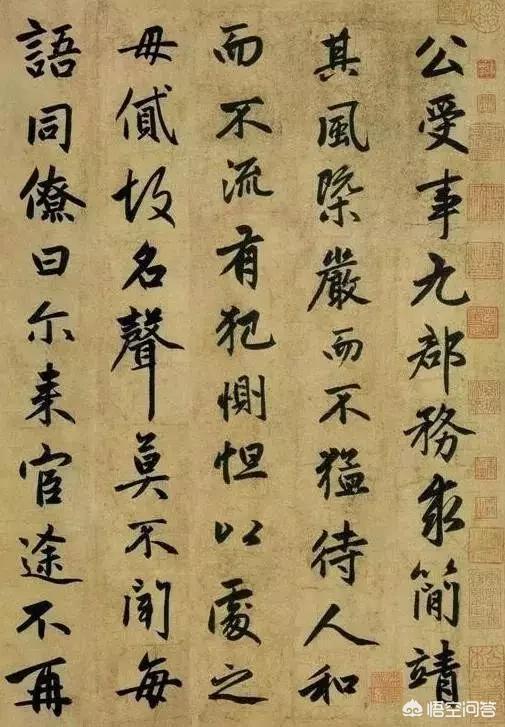 公受事九郡務求簡靖
其風槩嚴而不猛待人和
而不流有犯惻怛以處之
毋貮故名聲莫不聞每
語同僚曰尔来宦途不再
悟空问答